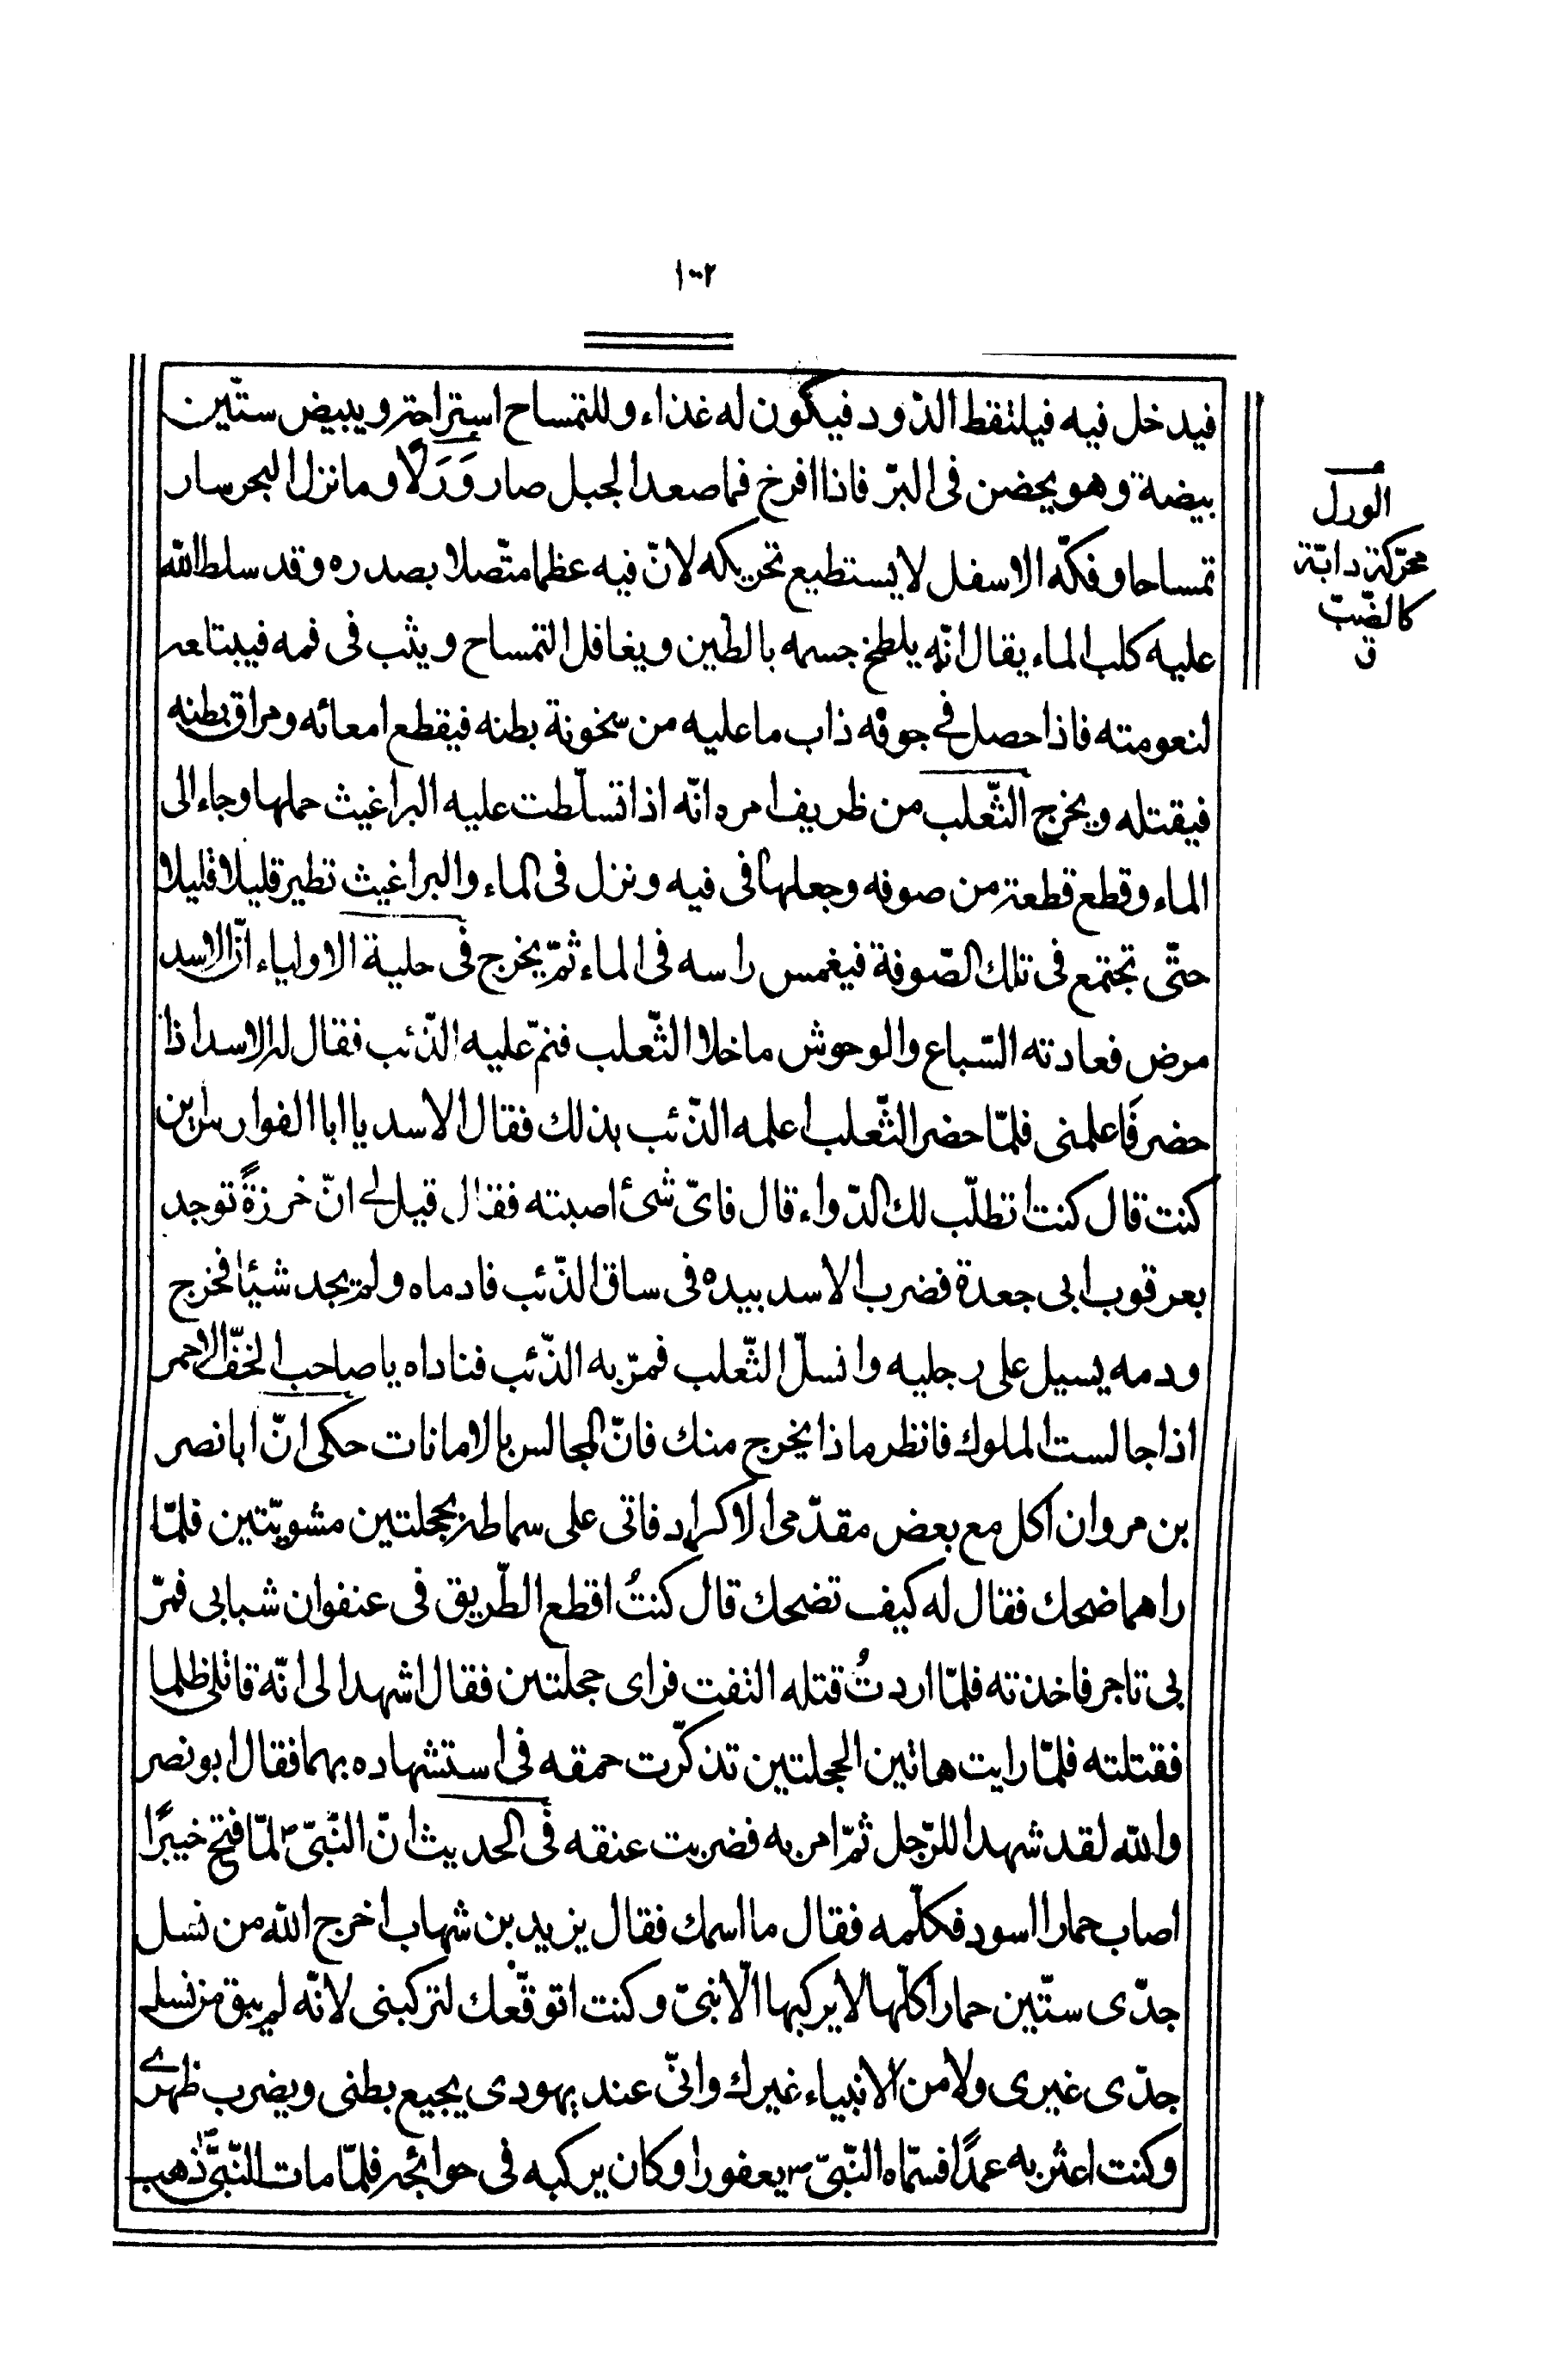 ١٠٠٢
فيدخل فيه فيلتقط الدّود فيكون له غذاء وللتمساح استراحة ويبيض ستّين
بيضة وهو يحضن فى البرّ فاذا افرخ فما صعد الجبل صار وَرَلًا وما نزل البحر سار
تمساحا وفكّه الاسفل لا يستطيع تحريكه لانّ فيه عظما متّصلا بصدره وقد سلط الله
عليه كلب الماء يقال انّه يلطخ جسمه بالطين ويغافل التمساح ويثب فى فمه فيبتلعه
لنعومته فاذا حصل فى جوفه ذاب ما عليه من سخونة بطنه فيقطع امعائه ومراق بطنه
فيقتله ويخرج الثّعلب من ظريف امره انّه اذا تسلّطت عليه البراغيث حملها وجاء الى
الماء وقطع قطعة من صوفه وجعلها فى فيه ونزل فى الماء والبراغيث تطير قليلا قليلا
حتّى تجتمع فى تلك الصّوفة فيغمس راسه فى الماء ثمّ يخرج فى حلية الاولياء انّ الاسد
مرض فعادته السّباع والوحوش ما خلا الثّعلب فنمّ عليه الذّئب فقال له الاسد اذا
حضر فَاعلمنى فلمّا حضر الثّعلب اعلمه الذّئب بذلك فقال الاسد يا ابا الفوارس اين
كنت قال كنت اتطلّب لك الدّواء قال فاىّ شئ اصبته فقال قيل لى انّ خرزةً توجد
بعرقوب ابى جعدة فضرب الاسد بيده فى ساق الذّئب فادماه ولم يجد شيئا فخرج
ودمه يسيل على رجليه وانسلّ الثّعلب فمرّ به الذّئب فناداه يا صاحب الخفّ الاحمر
اذا جالست الملوك فانظر ماذا يخرج منك فانّ المجالس بالامانات حكى انّ ابا نصر
بن مروان اكل مع بعض مقدّمى الاكراد فاتى على سماطه بحجلتين مشويّتين فلمّا
راهما ضحك فقال له كيف تضحك قال كنتُ اقطع الطّريق فى عنفوان شبابى فمرّ
بى تاجر فاخذته فلمّا اردتُ قتله التفت فراى حجلتين فقال اشهدا لى انّه قاتلى ظلما
فقتلته فلمّا رايت هاتين الحجلتين تذكّرت حمقه فى استشهاده بهما فقال ابو نصر
والله لقد شهدا للرّجل ثمّ امر به فضربت عنقه فى الحديث انّ النّبىّ ص لمّا فتح خيبرًا
اصاب حمارا اسود فكلّمه فقال ما اسمك فقال يزيد بن شهاب اخرج الله من نسل
جدّى ستّين حمارا كلّها لا يركبها الّا نبىّ وكنت اتوقّعك لتركبنى لانّه لم يبق من نسل
جدّى غيرى ولا من الانبياء غيرك وانّى عند يهودى يجيع بطنى ويضرب ظهرى
وكنت اعثر به عمدًا فسمّاه النّبىّ ص يعفورا وكان يركبه فى حوائجه فلمّا مات النّبىّ ذهب
الورل
محرّكة دابّة
كالضّبّ
ق